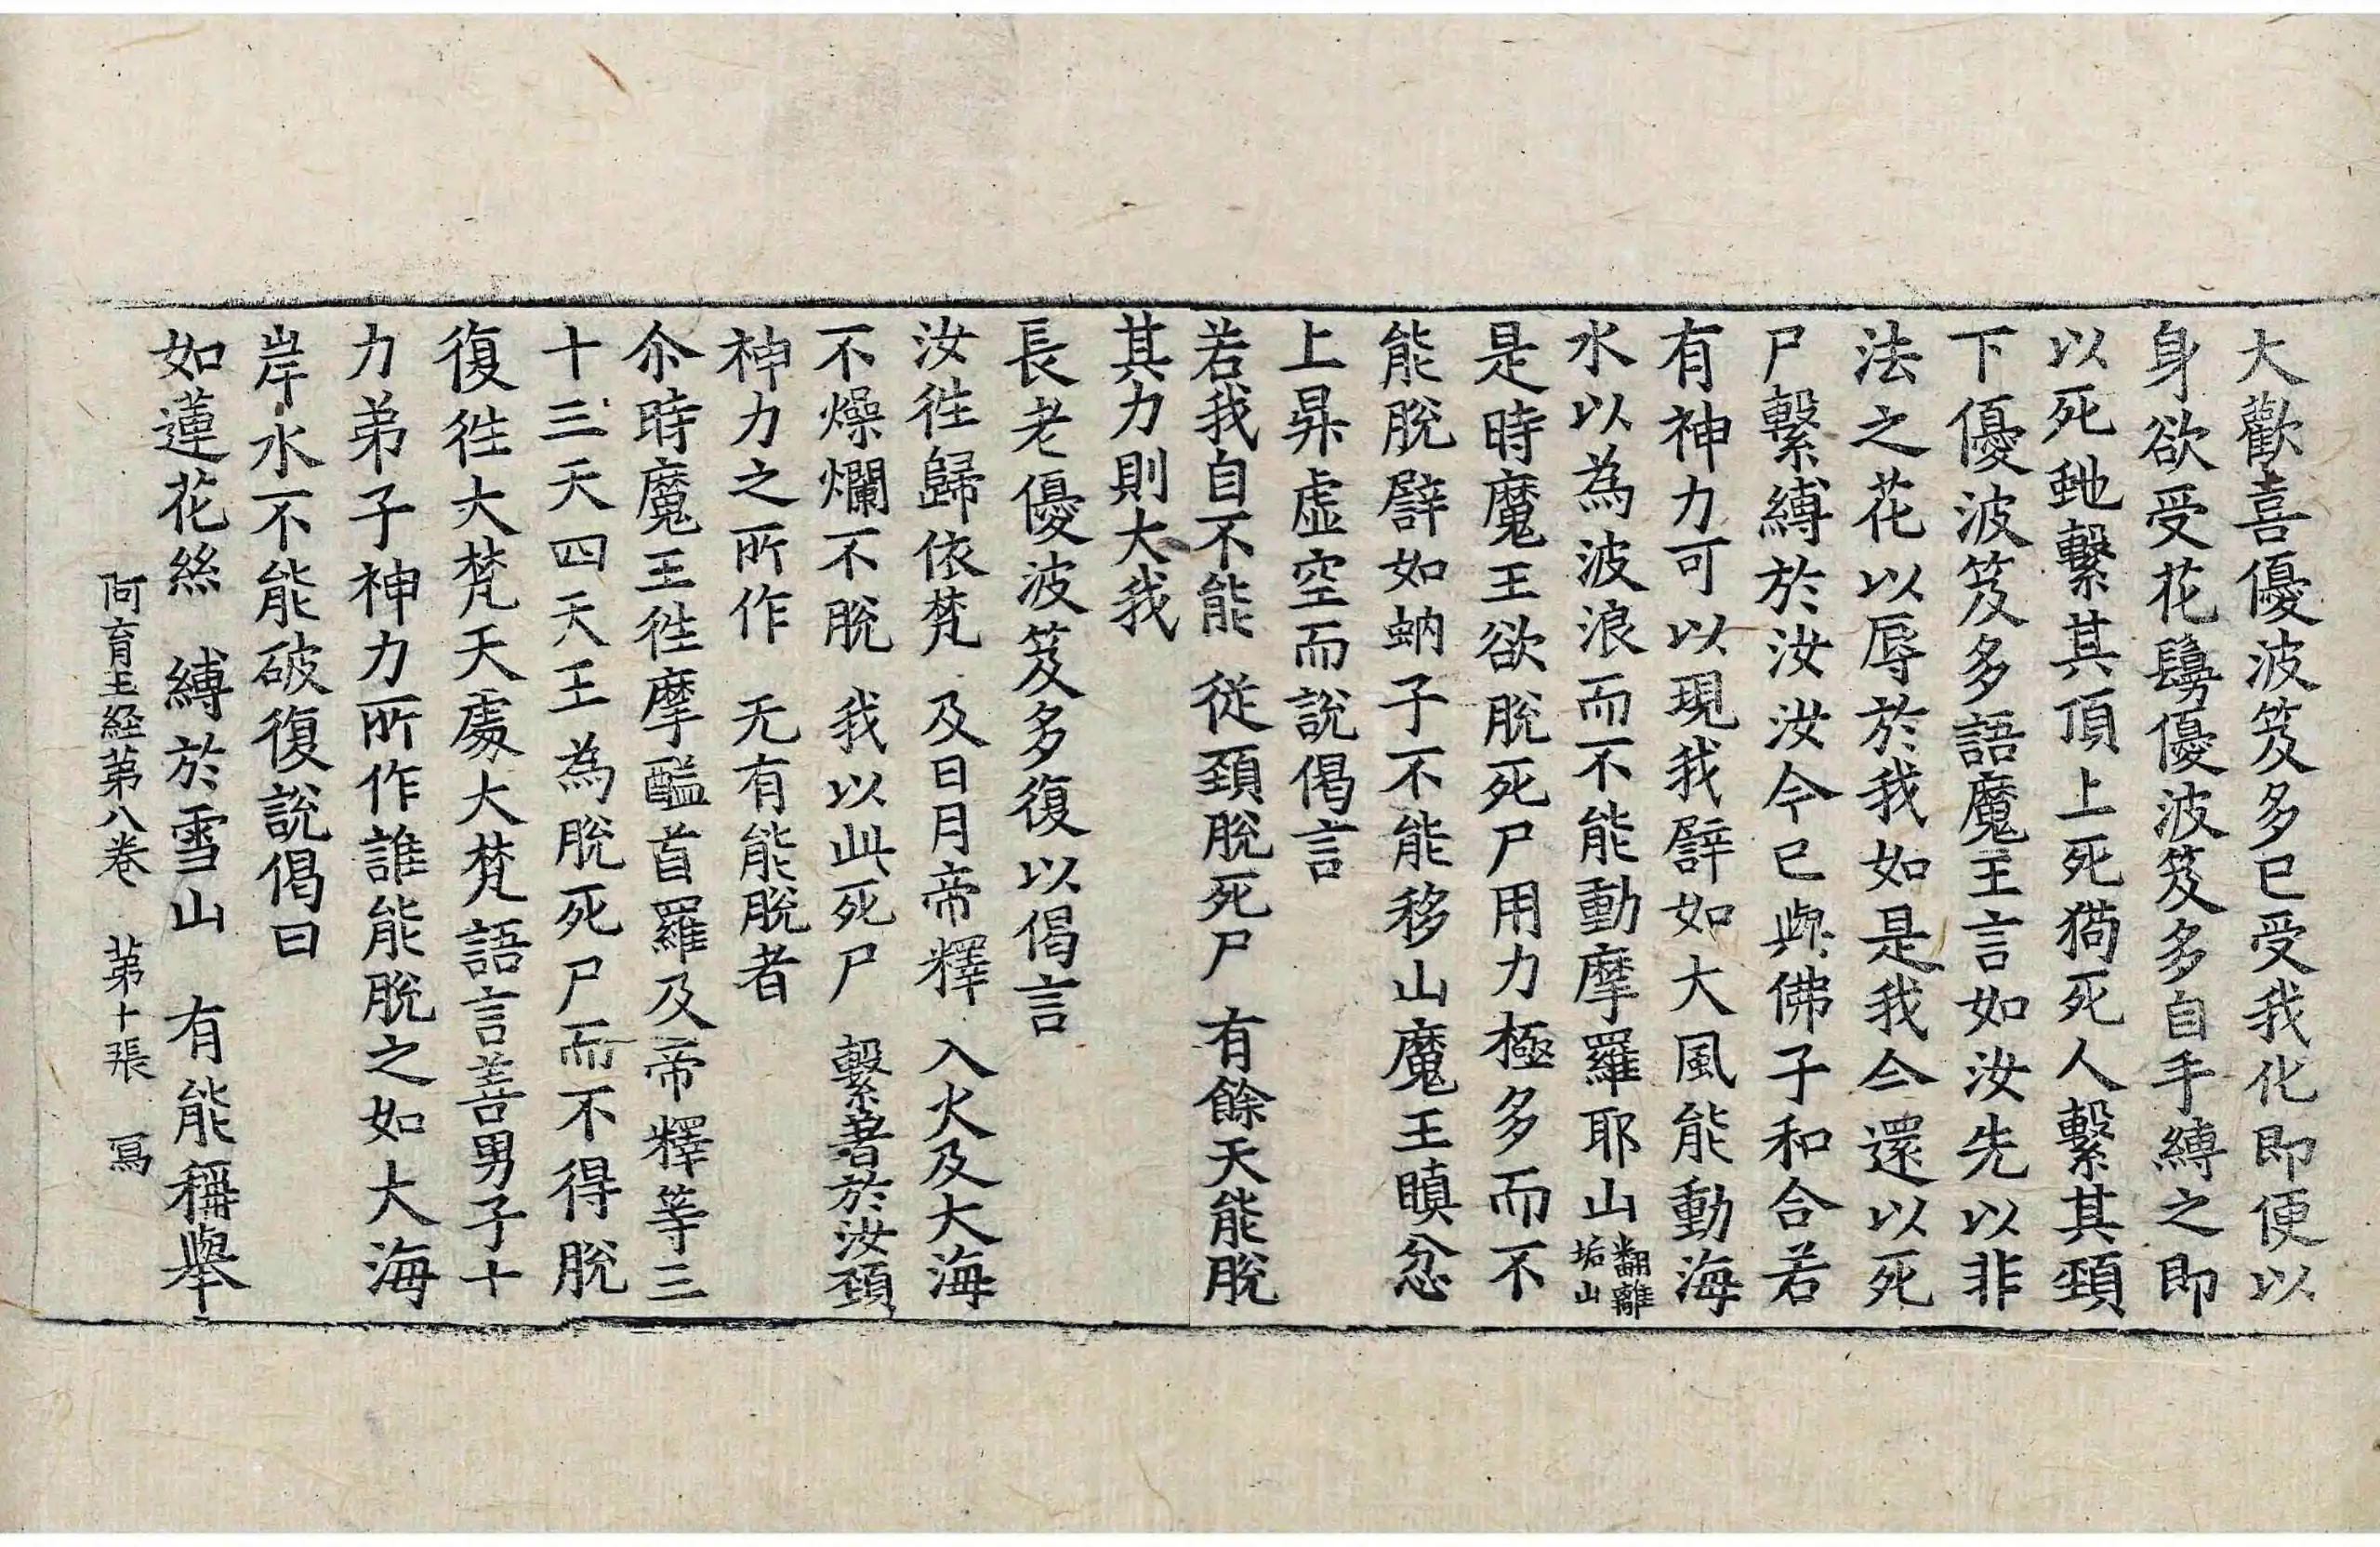 大歡喜優波笈多已受我化即便以
身欲受花鬘優波笈多自手縛之即
以死虵繫其頂上死猗死人繫其頸
下優波笈多語魔王言如汝先以非
法之花以辱於我如是我今還以死
尸繫縛於汝汝今已與佛子和合若
有神力可以現我譬如大風能動海
水以為波浪而不能動摩羅耶山翻離垢山
是時魔王欲脫死尸用力極多而不
能脫譬如蚋子不能移山魔王瞋忿
上昇虛空而說偈言
若我自不能　從頸脫死尸　有餘天能脫
其力則大我
長老優波笈多復以偈言
汝徃歸依梵　及日月帝釋　入火及大海
不燥爛不脫　我以此死尸　繫著於汝頸
神力之所作　无有能脫者
尒時魔王徃摩醯首羅及帝釋等三
十三天四天王為脫死尸而不得脫
復徃大梵天處大梵語言善男子十
力弟子神力所作誰能脫之如大海
岸水不能破復說偈曰
如蓮花絲　縛於雪山　有能稱舉
阿育王経第八卷　第十張　寫